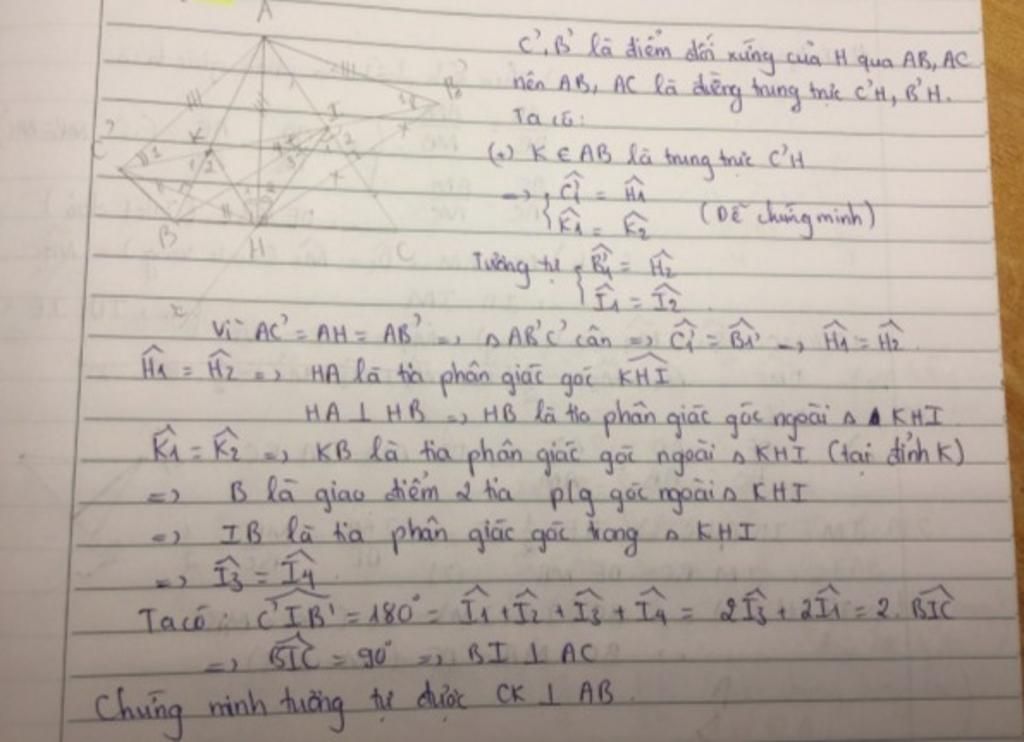 A
C', B' là điểm đối xứng của H qua AB, AC
nên AB, AC là đường trung trực C'H, B'H.
Ta có:
(+) K ∈ AB là trung trực C'H
=> { Ĉ'₁ = Ĥ₁
K̂₁ = K̂₂ (Dễ chứng minh)
Tương tự { B̂'₁ = Ĥ₂
Î₁ = Î₂
B'
I
K
C'
B
H
C
Vì AC' = AH = AB' => △ AB'C' cân => Ĉ'₁ = B̂₁' => Ĥ₁ = Ĥ₂
Ĥ₁ = Ĥ₂ => HA là tia phân giác góc KHI
HA ⊥ HB => HB là tia phân giác góc ngoài △ KHI
K̂₁ = K̂₂ => KB là tia phân giác góc ngoài △ KHI (tại đỉnh K)
=> B là giao điểm 2 tia p/g góc ngoài △ KHI
=> IB là tia phân giác góc trong △ KHI
=> Î₃ = Î₄
Ta có: C'IB' = 180° = Î₁ + Î₂ + Î₃ + Î₄ = 2Î₃ + 2Î₁ = 2. BIC
=> BIC = 90° => BI ⊥ AC
Chứng minh tương tự được CK ⊥ AB.